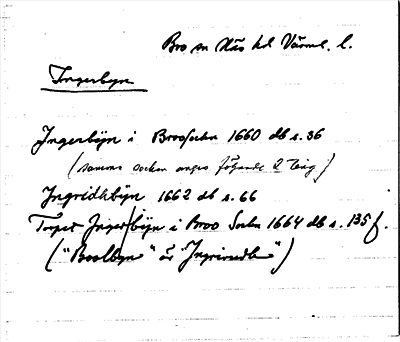 Bro sn Näs hd Värml. l.
Ingerbyn
Ingerbÿn i BrooSochn 1660 db s. 36
(samma socken anges följande 2 ting)
Ingridhbÿn 1662 db s. 66
Torpet Inger/bÿn i Broo Sochn 1664 db s. 135 f.
("Boolbyn" är "Ingrirudh")